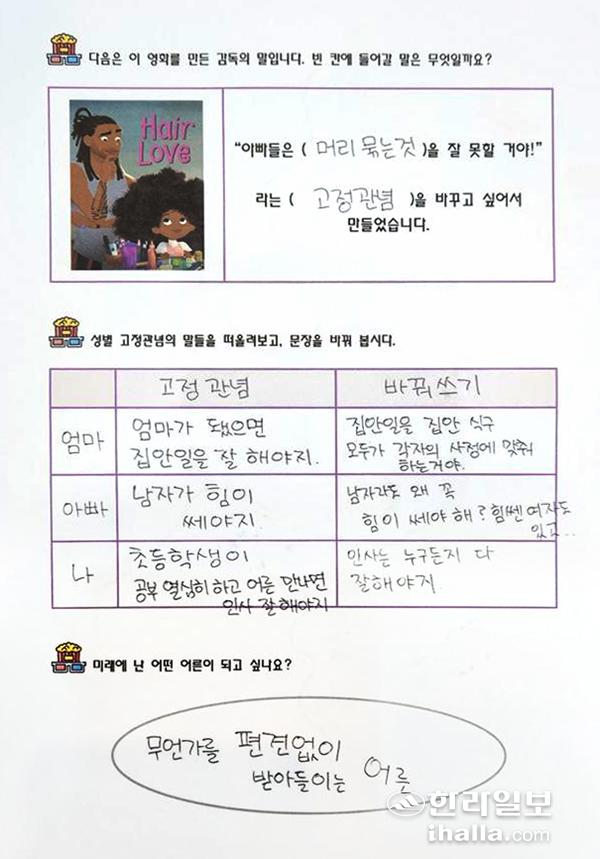 다음은 이 영화를 만든 감독의 말입니다. 빈 칸에 들어갈 말은 무엇일까요?
Hair
LOVE
"아빠들은 ( 머리 묶는것 )을 잘 못할 거야!"
라는 ( 고정관념 )을 바꾸고 싶어서
만들었습니다.
성별 고정관념의 말들을 떠올려보고, 문장을 바꿔 봅시다.
고정관념
바꿔쓰기
엄마
엄마가 됐으면
집안일을 잘 해야지.
집안일을 집안 식구
모두가 각자의 사정에 맞춰
하는거야.
아빠
남자가 힘이
쎄야지.
남자라도 왜 꼭
힘이 쎄야 해? 힘쎈 여자도
있고...
나
초등학생이
공부 열심히 하고 어른 만나면
인사 잘해야지
인사는 누구든지 다
잘해야지.
미래에 난 어떤 어른이 되고 싶나요?
무언가를 편견없이
받아들이는 어른
한라일보
ihalla.com